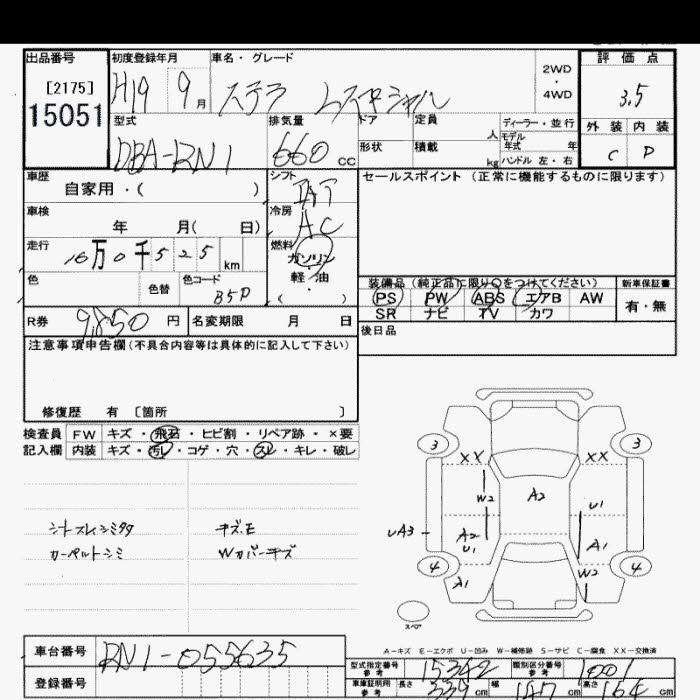 出品番号 初度登録年月 車名・グレード 評価点
[2175] H19 9月 ステラ 2WD・4WD 3.5
15051
型式 排気量 ドア 定員 人 ディーラー・並行 外装 内装
DBA-RN1 660cc 形状 積載 kg モデル年式 年 C D
ハンドル 左・右
車歴 シフト セールスポイント(正常に機能するものに限ります)
自家用・( )
車検 冷房 AC
年 月( 日)
走行 燃料 ガソリン
10万0千525km 軽油
色 色替 色コード ・
B5P ( )
装備品(純正品に限り○をつけてください) 新車保証書
PS PW ABS エアB AW 有・無
SR ナビ TV カワ
R券 9,850円 名変期限 月 日 後日品
注意事項申告欄(不具合内容等は具体的に記入して下さい)
修復歴 有 [箇所 ]
検査員 FW キズ・飛石・ヒビ割・リペア跡・×要
記入欄 内装 キズ・汚レ・コゲ・穴・スレ・キレ・破レ
3 3
XX XX
W2 A2 U1
シートスレシミタタ キズE UA3 A2 U1 A1
カーペットシミ Wカバーキズ 4 4
A1 W2
スペア
A-キズ E-エクボ U-凹み W-補修跡 S-サビ C-腐食 XX-交換済
車台番号 RN1-055635
型式指定番号 参考 15342 類別区分番号 参考 1001
登録番号
車庫証明用 参考 長さ 339cm 幅 147cm 高さ 164cm